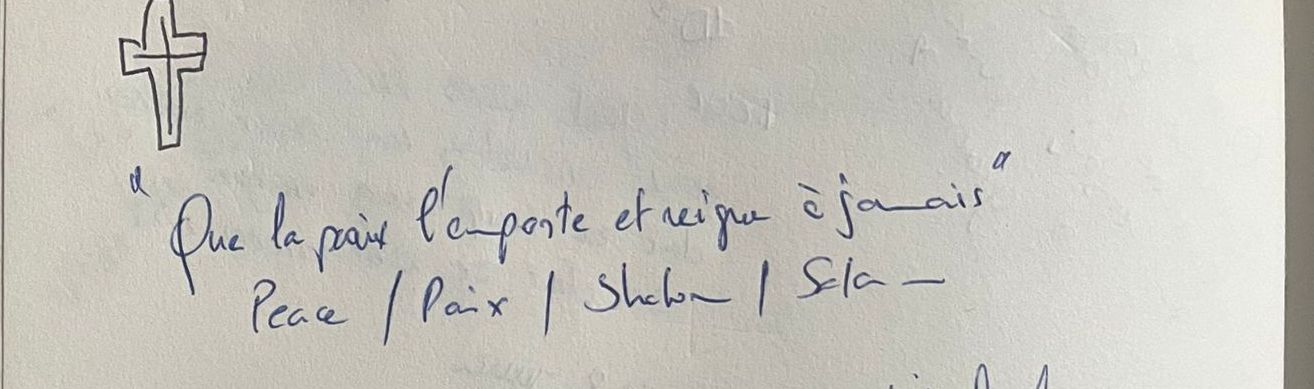 "Que la paix l'emporte et reigne à jamais"
Peace / Paix / Shalom / Salam